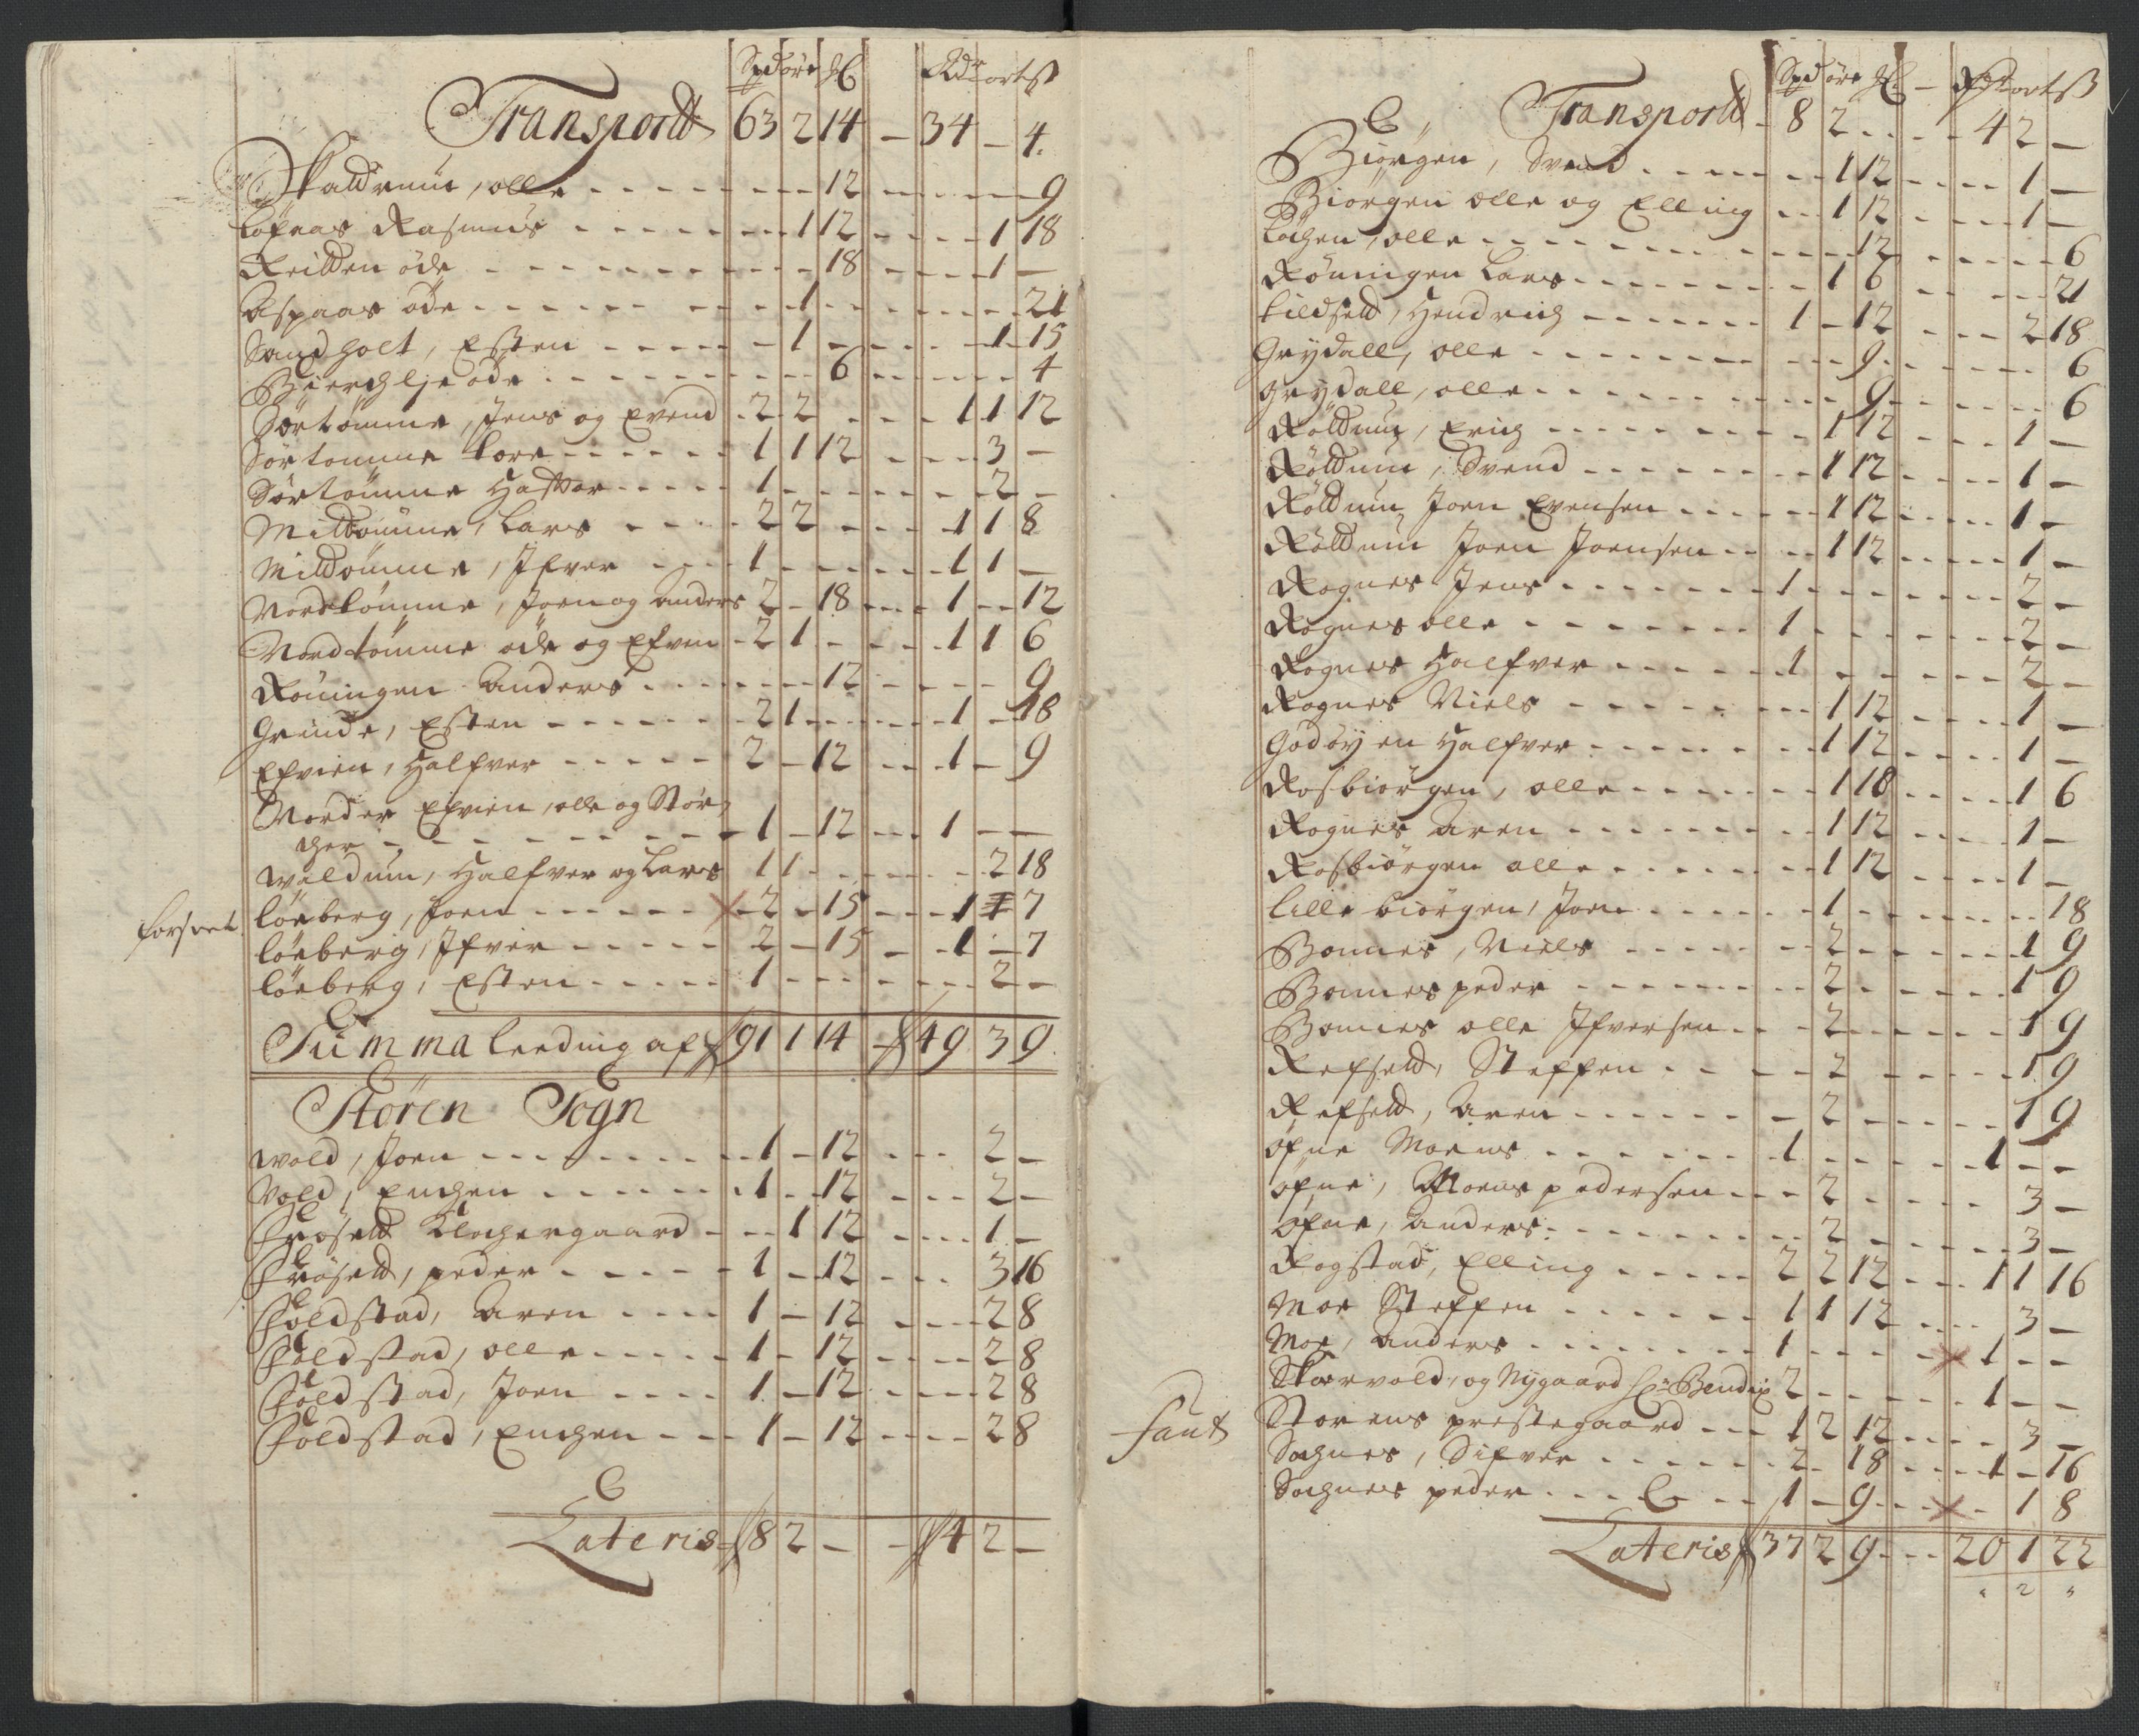 Spd øre ₰ Rdr ort ß
Transportt 63 2 14 – 34 – 4.
Skaldrum, olle - - - 12 - - - 9
Løfaas Rasmus - - - 1 12 - - - 1 18
Reitten øde - - - 18 - - - 1 –
Aspaas øde - - - 1 - - - 21
Sandholt, Esten - - - 1 - - - 1 15
Bierchlje øde - - - 6 - - - 4
Sørtømme, Jens og Evend - 2 2 - - - 1 1 12
Sørtømme Tore - - - 1 1 12 - - - 3 –
Sørtømme Haldor - - - 1 - - - 2 –
Midtømme, Lars - - - 2 2 - - - 1 1 8
Midtømme, Ifver - - - 1 - - - 1 1 –
Nordtømme, Joen og Anders 2 – 18 - - - 1 - - 12
Nordtømme øde og Efven - 2 1 - - - 1 1 6
Røningen Anders - - - 12 - - - 9
Grinde, Esten - - - 2 1 - - - 1 – 18
Efvien, Halfver - - - 2 – 12 - - - 1 – 9
Norder Efvien, olle og Stør,
cher - - - 1 – 12 - - - 1 – –
Waldum, Halfver og Lars 1 1 - - - 2 18
forsvet. Løeberg, Joen - - - × 2 – 15 - - - 1 1 7
Løeberg, Ifver - - - 2 – 15 - - - 1 – 7
Løeberg, Esten - - - 1 - - - 2 –
Summa Leeding af 91 1 14 – 49 3 9.
Støren Sogn
Wold, Joen - - - 1 – 12 - - - 2 –
Vold, Engen - - - 1 - - 12 - - - 2 –
Frøseth Klochergaard - - - 1 12 - - - 1 –
Frøseth, peder - - - 1 – 12 - - - 3 16
Foldstad, Aren - - - 1 – 12 - - - 2 8
Foldstad, olle - - - 1 – 12 - - - 2 8
Foldstad, Joen - - - 1 – 12 - - - 2 8
Foldstad, Engen - - - 1 – 12 - - - 2 8
Lateris 8 2 – – 4 2 –
Spd øre ₰ – Rdr ort ß
Transportt - 8 2 - - - 4 2 –
Biørgen, Svend - - - 1 12 - - - 1 –
Biørgen olle og Elling - - 1 12 - - - 1 –
Løchen, olle - - - 12 - - - 6
Røningen Lars - - - 1 6 - - - 21
Kildseth, Hendrich - - - 1 – 12 - - - 2 18
Grydall, olle - - - 9 - - - 6
Grydall, olle - - - 9 - - - 6
Røldum, Erich - - - 1 12 - - - 1 –
Røldum, Svend - - - 1 12 - - - 1 –
Røldum Joen Evensen - - - 1 12 - - - 1 –
Røldum Joen Joensen - - - 1 12 - - - 1 –
Rognes Jens - - - 1 - - - 2 –
Rognes olle - - - 1 - - - 2 –
Rognes Halfver - - - 1 - - - 2 –
Rognes Niels - - - 1 12 - - - 1 –
Godøyen Halfver - - - 1 12 - - - 1 –
Rosbiørgen, olle - - - 1 18 - - - 1 6
Rognes Aren - - - 1 12 - - - 1 –
Rosbiørgen olle - - - 1 12 - - - 1 –
Lille biørgen, Joen - - - 1 - - - 18
Bonnes, Niels - - - 2 - - - 1 9
Bonnes peder - - - 2 - - - 1 9
Bonnes olle Ifversen - - - 2 - - - 1 9
Refseth, Steffen - - - 2 - - - 1 9
Refseth, Aren - - - 2 - - - 1 9
Øfne Moens - - - 1 - - - 1 – –
Øfne, Moens pedersen - - - 2 - - - 3 –
Øfne, Anders - - - 2 - - - 3 –
Rogstad, Elling - - - 2 2 12 - - - 1 1 16
Moe Steffen - - - 1 1 12 - - - 3 –
Moe, Anders - - - 1 - - - × 1 – –
Skarvold, og Nygaard Hr Bendix 2 - - - 1 - -
faut Størens prestegaard - - - 1 2 12 - - - 3 –
Sognes, Sifver - - - 2 - 18 - - - 1 – 16
Sognes peder - - - 1 – 9 - - - × - 1 8
Lateris 37 2 9 - - - 20 1 22
" 2 "